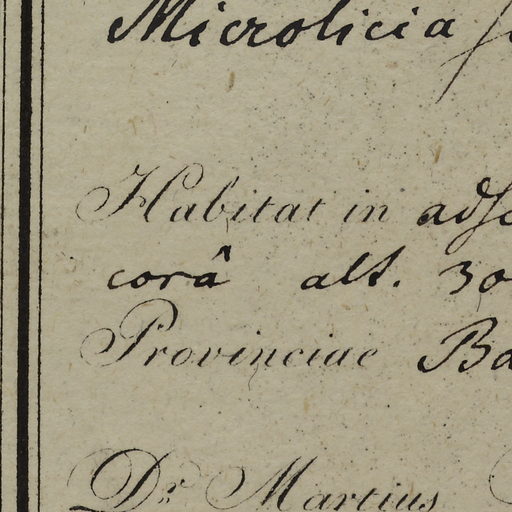 Microlicia
Habitat in
corâ alt. 30
Provinciae Ba
Dr. Martius